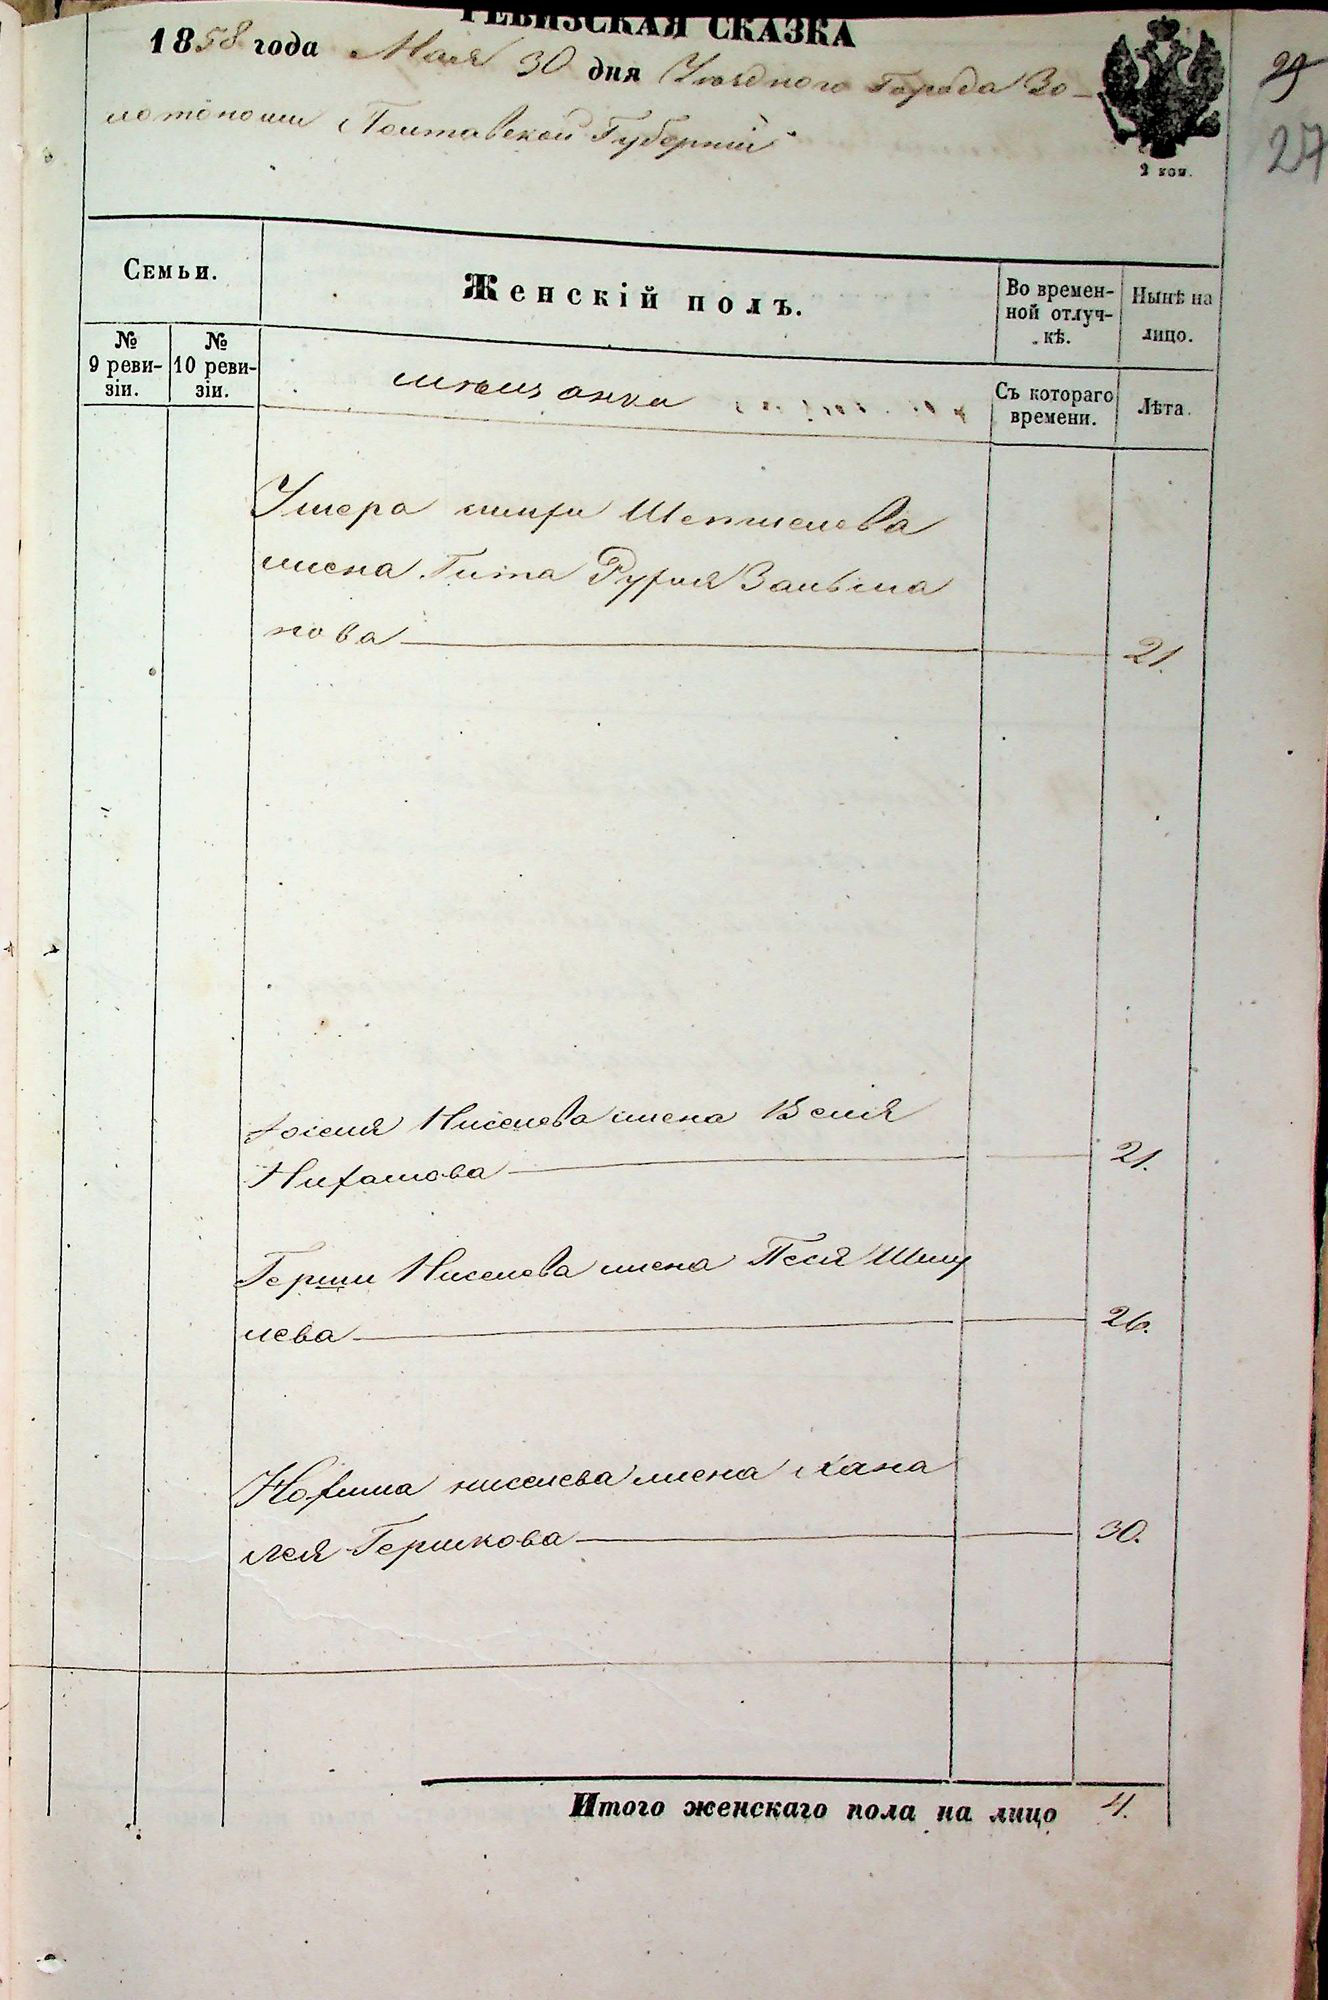 РЕВИЗСКАЯ СКАЗКА
1858 года Мая 30 дня Уѣзднаго Города Зо-
лотоноши Полтавской Губерніи
2 коп.
29
27
Семьи.
Женскій полъ.
Во времен-
ной отлуч-
кѣ.
Нынѣ на
лицо.
№
9 реви-
зіи.
№
10 реви-
зіи.
мѣщанка
Съ котораго
времени.
Лѣта.
жена Гита Зальма
нова 21.
Нисенева жена
21.
Герши Нисенева жена Песя Шму
лева 26.
нисенева жена Хана
Лея Гершкова 30.
Итого женскаго пола на лицо 4.